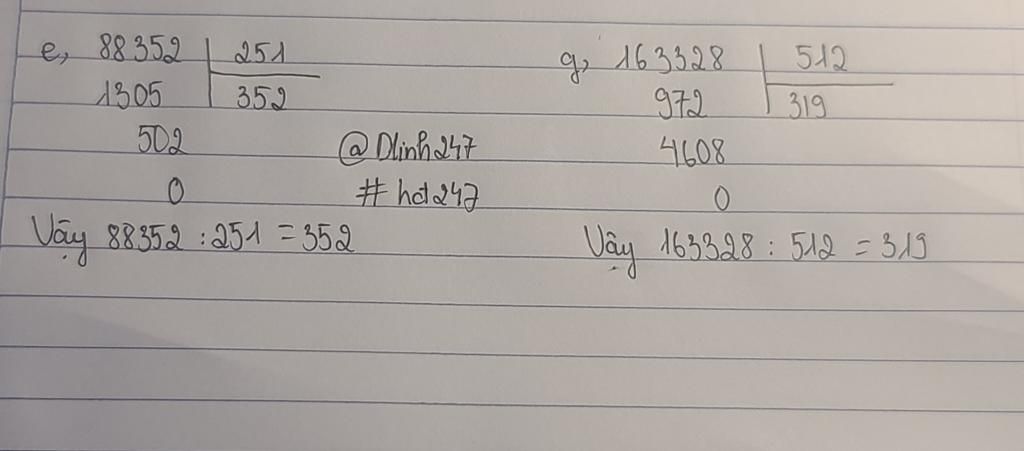 e, 88352 | 251
1305 | 352
502
0
Vậy 88352 : 251 = 352
@Dlinh247
# hd247
g, 163328 | 512
972 | 319
4608
0
Vậy 163328 : 512 = 319